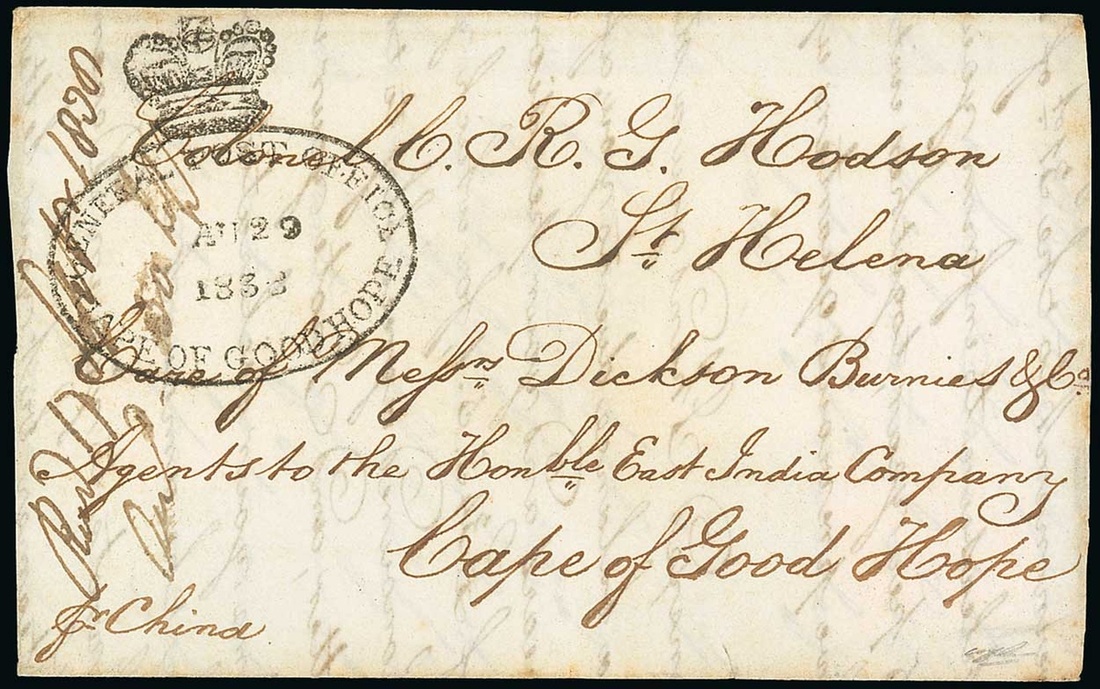 Colonel C. R. G. Hodson
St. Helena
Care of Messrs Dickson Burnies & Co.
Agents to the Honble East India Company
Cape of Good Hope
pr China
GENERAL POST OFFICE
AU 29
CAPE OF GOOD HOPE
Recd 17 Septr 1830